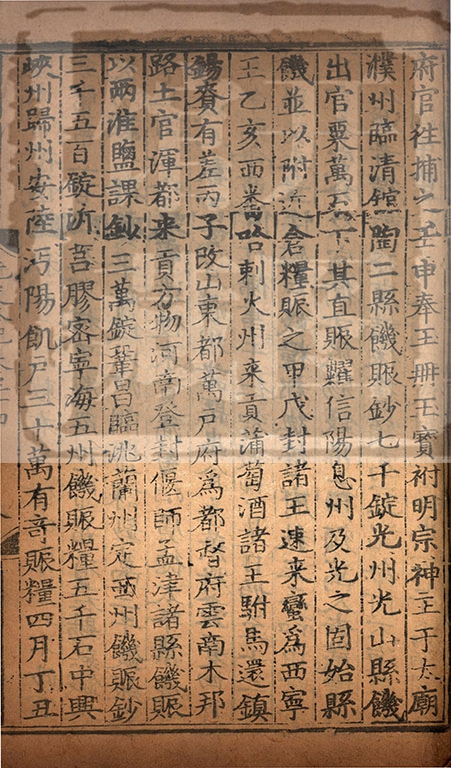 府官往捕之壬申奉玉冊玉寶祔明宗神主于太廟
濮州臨清館陶二縣饑賑鈔七千錠光州光山縣饑
出官粟萬石下其直賑糶信陽息州及光之固始縣
饑並以附近倉糧賑之甲戌封諸王速來蠻爲西寧
王乙亥西番哈剌火州來貢蒲萄酒諸王駙馬還鎮
錫賚有差丙子改山東都萬戶府爲都督府雲南木邦
路土官渾都來貢方物河南登封偃師孟津諸縣饑賑
以兩淮鹽課鈔三萬錠鞏昌臨洮蘭州定西州饑賑鈔
三千五百錠沂莒膠密寧海五州饑賑糧五千石中興
峽州歸州安陸沔陽飢戶三十萬有奇賑糧四月丁丑